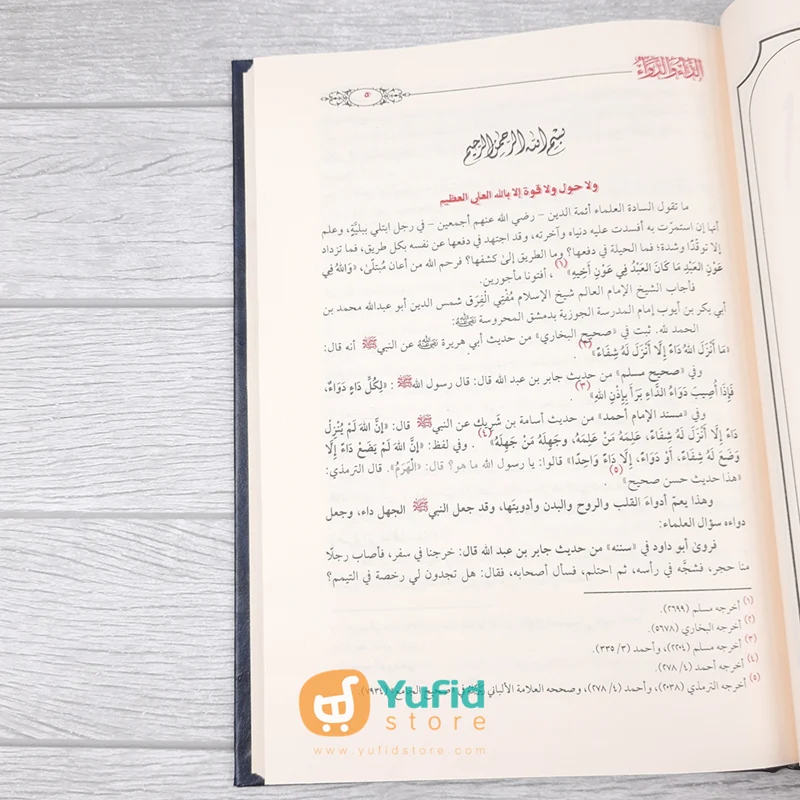 الدَّاءُ وَالدَّوَاءُ
٥
بسم الله الرحمن الرحيم
ولا حول ولا قوة إلا بالله العلي العظيم
ما تقول السادة العلماء أئمة الدين – رضي الله عنهم أجمعين – في رجل ابتلي ببليَّةٍ، وعلم
أنها إن استمرّت به أفسدت عليه دنياه وآخرته، وقد اجتهد في دفعها عن نفسه بكل طريق، فما تزداد
إلا توقّدًا وشدة؛ فما الحيلة في دفعها؟ وما الطريق إلىٰ كشفها؟ فرحم الله من أعان مُبتلىٰ، «وَاللهُ فِي
عَوْنِ العَبْدِ مَا كَانَ العَبْدُ فِي عَوْنِ أَخِيهِ» (١)، أفتونا مأجورين.
فأجاب الشيخ الإمام العالم شيخ الإسلام مُفْتِي الْفِرَق شمس الدين أبو عبدالله محمد بن
أبي بكر بن أيوب إمام المدرسة الجوزية بدمشق المحروسة ﷺ:
الحمد لله. ثبت في «صحيح البخاري» من حديث أبي هريرة ﷺ عن النبي ﷺ أنه قال:
«مَا أَنْزَلَ اللهُ دَاءً إِلَّا أَنْزَلَ لَهُ شِفَاءً» (٢).
وفي «صحيح مسلم» من حديث جابر بن عبد الله قال: قال رسول الله ﷺ: «لِكُلِّ دَاءٍ دَوَاءٌ،
فَإِذَا أُصِيبَ دَوَاءُ الدَّاءِ بَرَأَ بِإِذْنِ اللهِ» (٣).
وفي «مسند الإمام أحمد» من حديث أسامة بن شَرِيك عن النبي ﷺ قال: «إنَّ اللهَ لَمْ يُنْزِل
دَاءً إِلَّا أَنْزَلَ لَهُ شِفَاءً، عَلِمَهُ مَنْ عَلِمَهُ، وجَهِلَهُ مَنْ جَهِلَهُ» (٤). وفي لفظ: «إنَّ اللهَ لَمْ يَضَعْ دَاءً إِلَّا
وَضَعَ لَهُ شِفَاءً، أَوْ دَوَاءً، إِلَّا دَاءً وَاحِدًا» قالوا: يا رسول الله ما هو؟ قال: «الْهَرَمُ». قال الترمذي:
«هذا حديث حسن صحيح» (٥).
وهذا يعمّ أدواءَ القلب والروح والبدن وأدويتها، وقد جعل النبي ﷺ الجهل داء، وجعل
دواءه سؤال العلماء:
فروىٰ أبو داود في «سننه» من حديث جابر بن عبد الله قال: خرجنا في سفر، فأصاب رجلًا
منا حجر، فشجَّه في رأسه، ثم احتلم، فسأل أصحابه، فقال: هل تجدون لي رخصة في التيمم؟
(١) أخرجه مسلم (٢٦٩٩).
(٢) أخرجه البخاري (٥٦٧٨).
(٣) أخرجه مسلم (٢٢٠٤)، وأحمد (٣/ ٣٣٥).
(٤) أخرجه أحمد (٤/ ٢٧٨).
(٥) أخرجه الترمذي (٢٠٣٨)، وأحمد (٤/ ٢٧٨)، وصححه العلامة الألباني في «صحيح الجامع» (٧٩٣٤).
Yufid
store
www.yufidstore.com